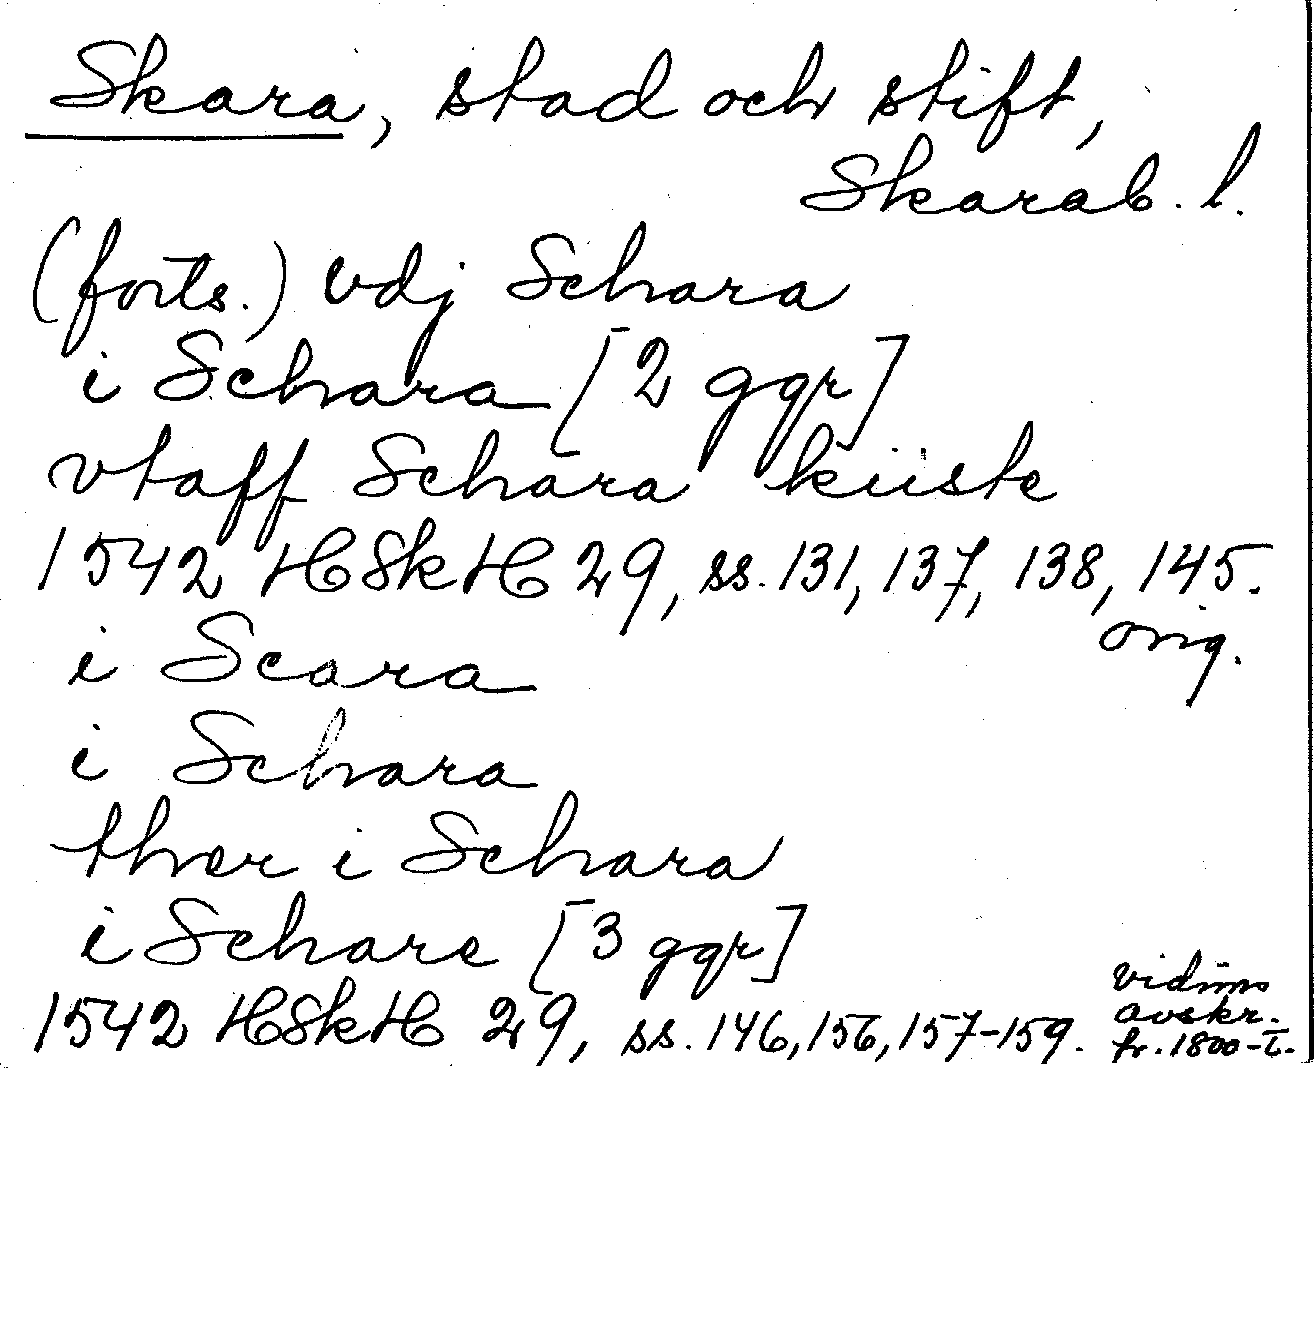 Skara, stad och stift,
Skarab. l.
(forts.) vdj Schara
i Schara [2 ggr]
vtaff Schara küste
1542 HSkH 29, ss. 131, 137, 138, 145.
orig.
i Scara
i Schara
ther i Schara
i Schare [3 ggr]
1542 HSkH 29, ss. 146, 156, 157-159.
avskr.
fr. 1800-t.